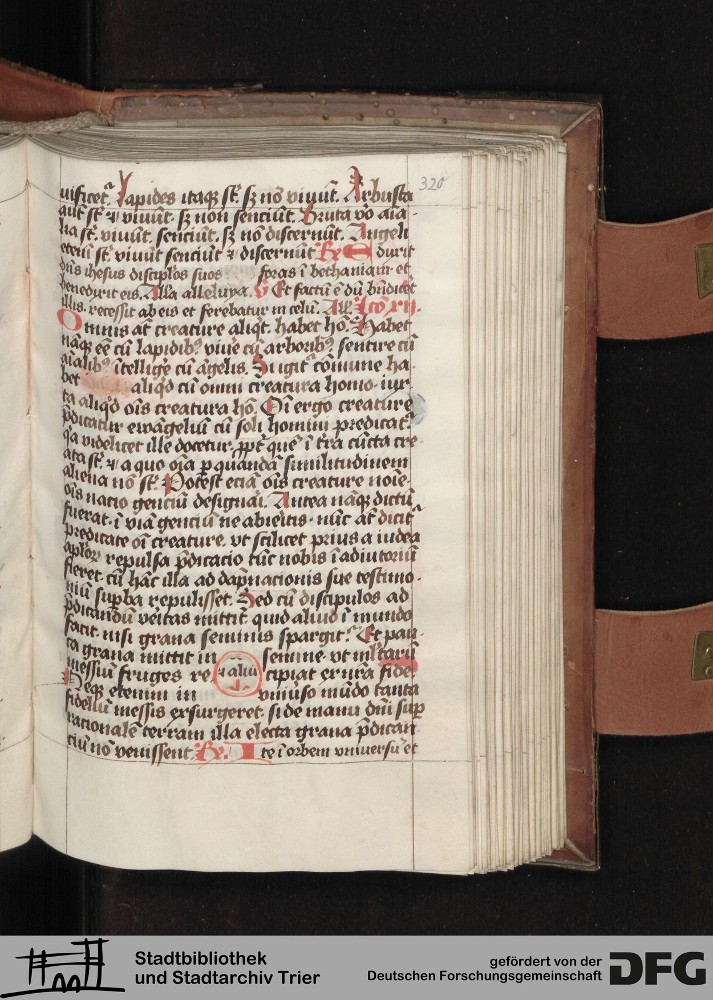 320
uificet. Lapides itaq; st. sz nō viuūt. Arbusta
aūt st. ⁊ viuūt. sz non senciūt. Bruta vō aīa-
lia st. viuūt. senciūt. sz nō discernūt. Angeli
eteni st. viuūt senciūt ⁊ discernūt Rx Eduxit
dn̄s ihesus disciplos suos foras ī bethaniam et
benedixit eis. Alla alleluya. V Et factū ē dū bn̄dicet
illis. recessit ab eis et ferebatur in celū. All. Lco xii.
Omnis at creature aliqt. habet hō. Habet
nāq; eē cū lapidibꝰ viue cū arboribꝰ sentire cū
aīalibꝰ ītellige cū āgelis. Si igit cōmune ha-
bet aliqd cū omni creatura homo. iux-
ta aliqd oīs creatura hō. Oī ergo creature
p̄dicatur ewāgeliū cū soli homini predicat.
q̄a videlicet ille docetur. ppt quē ī tr̄a cūcta cre-
ata st. ⁊ a quo oīa p quandā similitudinem
aliena nō st. Potest eciā oīs creature noīe.
oīs natio genciū designari. Antea nāq; dictū
fuerat. ī viā genciū ne abieritis. nūc at dicit
predicate oī creature. vt scilicet prius a iudea
aplor̄ repulsa p̄dicacio tūc nobis ī adiutoriū
fieret. cū hāc illa ad dāpnacionis sue testimo-
niū supba repulisset. Sed cū discipulos ad
p̄dicandū veritas mittit. quid aliud ī mundo
facit. nisi grana seminis spargit. Et pau-
ca grana mittit in semine. vt mltarū
messiū fruges re cipiat ex nr̄a fide
Neq; etenim in vniuso mūdo tanta
fidelīu messis exsurgeret. si de manu dn̄i sup
racionalē terram illa electa grana p̄dican
ciū nō venissent. Rx. Ite ī orbem vniuersū et
Stadtbibliothek
und Stadtarchiv Trier
gefördert von der
Deutschen Forschungsgemeinschaft
DFG